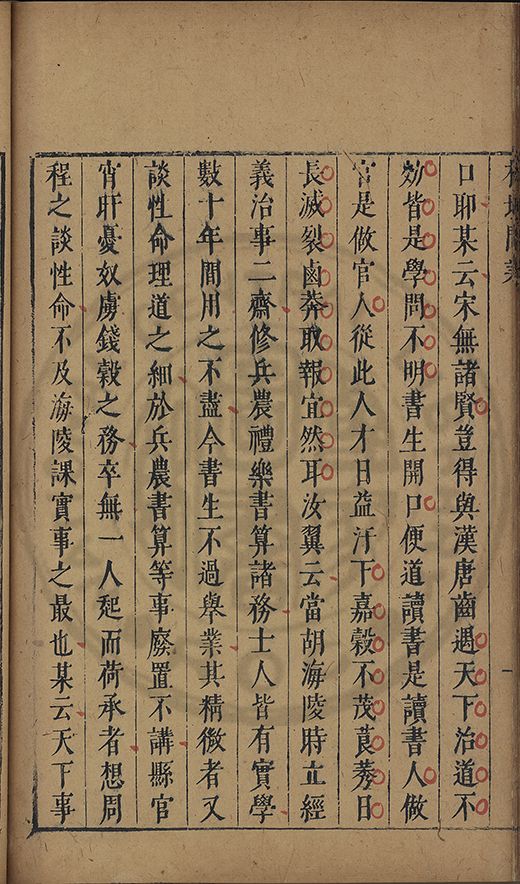 口耶某云宋無諸賢豈得與漢唐齒遇天下治道不
効皆是學問不明書生開口便道讀書是讀書人做
官是做官人從此人才日益汙下嘉穀不茂莨莠日
長滅裂鹵莽取報宜然耳汝翼云當胡海陵時立經
義治事二齋修兵農禮樂書算諸務士人皆有實學
數十年間用之不盡今書生不過舉業其精微者又
談性命理道之細於兵農書算等事廢置不講縣官
宵旰憂奴虜錢穀之務卒無一人起而荷承者想周
程之談性命不及海陵課實事之最也某云天下事